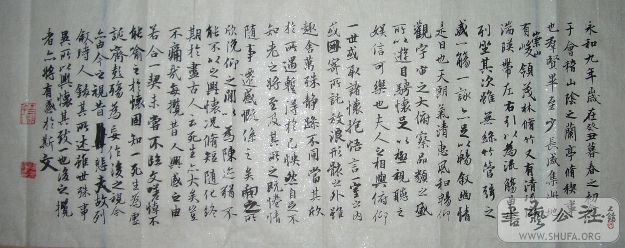 永和九年歲在癸丑暮春之初
于會稽山陰之蘭亭脩稧事
也羣賢畢至少長咸集此地
崇山
有峻領茂林脩竹又有清流激
湍暎帶左右引以為流觴曲水
列坐其次雖無絲竹管弦之
盛一觴一詠亦足以暢叙幽情
是日也天朗氣清惠風和暢仰
觀宇宙之大俯察品類之盛
所以遊目騁懷足以極視聽之
娛信可樂也夫人之相與俯仰
一世或取諸懷抱悟言一室之內
或因寄所託放浪形骸之外雖
趣舍萬殊靜躁不同當其欣
於所遇蹔得於己怏然自足不
知老之將至及其所之既惓情
隨事遷感慨係之矣向之所
欣俛仰之閒以為陳迹猶不
能不以之興懷況脩短隨化終
期於盡古人云死生亦大矣豈
不痛哉每攬昔人興感之由
若合一契未嘗不臨文嗟悼不
能喻之於懷固知一死生為虛
誕齊彭殤為妄作後之視今
亦由今之視昔悲夫故列
叙時人錄其所述雖世殊事
異所以興懷其致一也後之攬
者亦將有感於斯文
書法公社
WWW.SHUFA.ORG